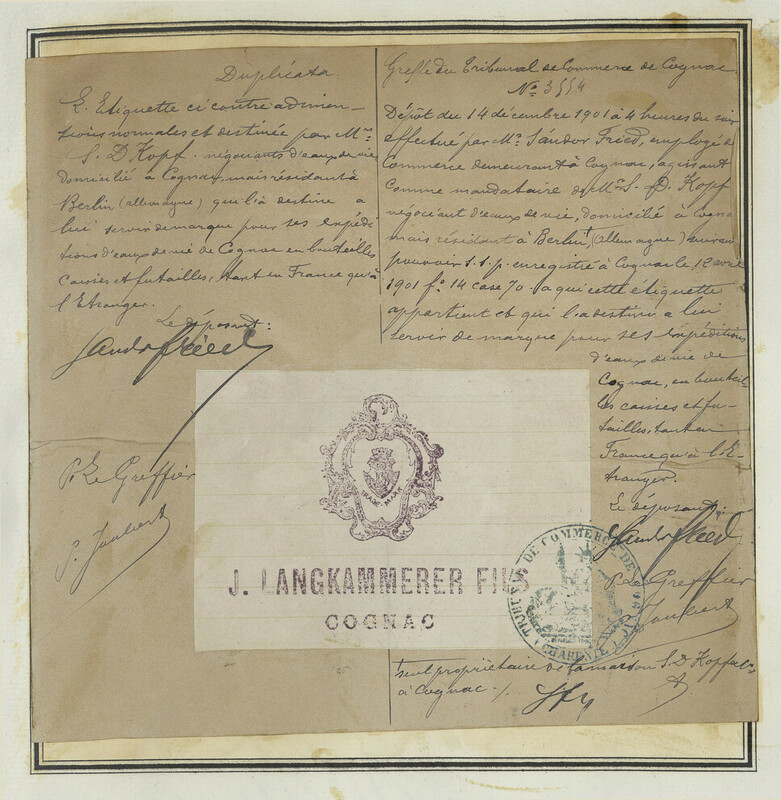 Duplicata
L'Etiquette ci contre a dimen-
sions normales et destinée par Mr
S. D Kopf négociants d'eaux de vie
domicilié à Cognac, mais résidant à
Berlin (allemagne) qui l'a destine a
lui servir de marque pour ses expédi
tions d'eaux de vie de Cognac en bouteilles
caisses et futailles, tant en France qu'à
l'Etranger.
Le déposant:
Sandor Fried
P. Le Greffier
P. Joubert
Greffe du Tribunal de Commerce de Cognac
No 3554
Dépôt du 14 décembre 1901 à 4 heures du soir
effectué par Mr Sándor Fried, employé de
Commerce demeurant à Cognac, agissant
comme mandataire de Mr S. D. Kopf
négociant d'eaux de vie, domicilié à Cogna
mais résidant à Berlin (allemagne) suivan
pouvoir s.s.p. enregistré à Cognac le 12 avril
1901 fo 14 case 70. a qui cette étiquette
appartient et qui l'a destine a lui
servir de marque pour ses expéditions
d'eaux de vie de
Cognac, en bouteil-
les caisses et fu-
tailles, tant en
France qu'à l'E-
tranger.
Le déposant:
Sandor Fried
P. Le Greffier
Joubert
TRADE MARK
J. LANGKAMMERER FILS
COGNAC
TRIBUNAL DE COMMERCE DE COGNAC
(CHARENTE)
seul propriétaire de la maison S. D Kopf & Co
à Cognac